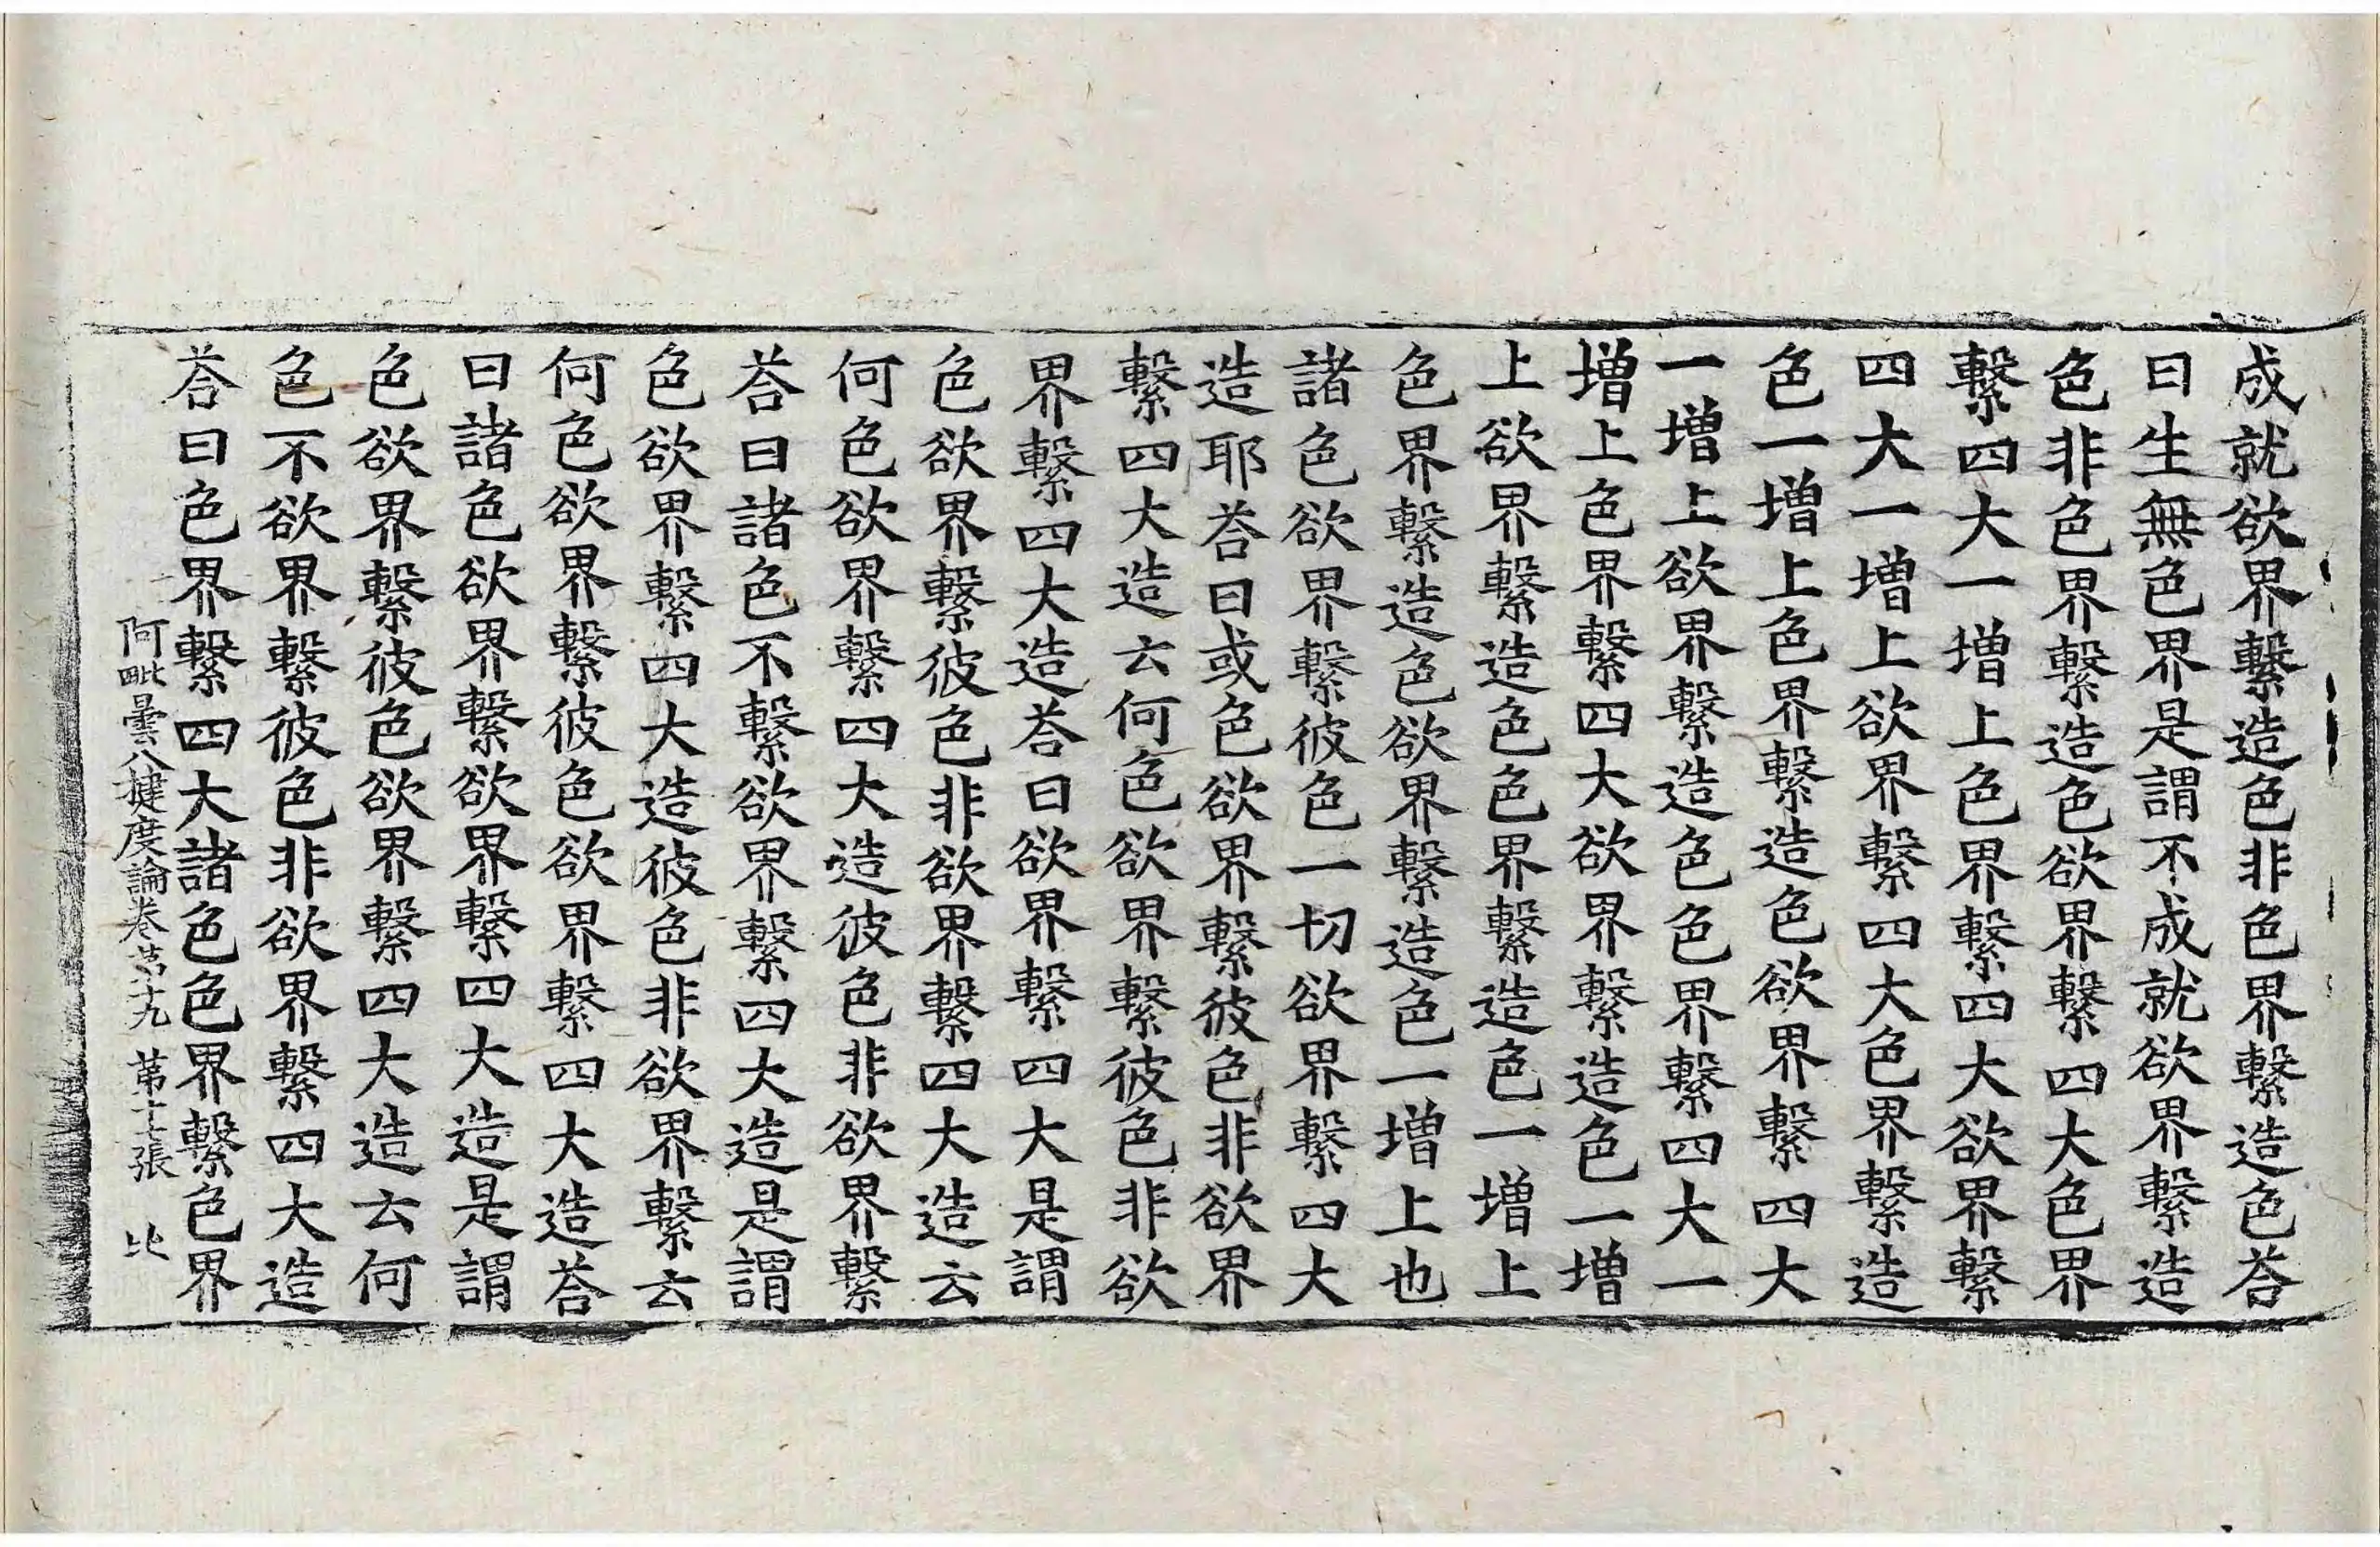 成就欲界繫造色非色界繫造色荅
曰生無色界是謂不成就欲界繫造
色非色界繫造色欲界繫四大色界
繫四大一增上色界繫四大欲界繫
四大一增上欲界繫四大色界繫造
色一增上色界繫造色欲界繫四大
一增上欲界繫造色色界繫四大一
增上色界繫四大欲界繫造色一增
上欲界繫造色色界繫造色一增上
色界繫造色欲界繫造色一增上也
諸色欲界繫彼色一切欲界繫四大
造耶荅曰或色欲界繫彼色非欲界
繫四大造云何色欲界繫彼色非欲
界繫四大造荅曰欲界繫四大是謂
色欲界繫彼色非欲界繫四大造云
何色欲界繫四大造彼色非欲界繫
荅曰諸色不繫欲界繫四大造是謂
色欲界繫四大造彼色非欲界繫云
何色欲界繫彼色欲界繫四大造荅
曰諸色欲界繫欲界繫四大造是謂
色欲界繫彼色欲界繫四大造云何
色不欲界繫彼色非欲界繫四大造
荅曰色界繫四大諸色色界繫色界
阿毗曇八揵度論卷苐十九 苐十二張 比